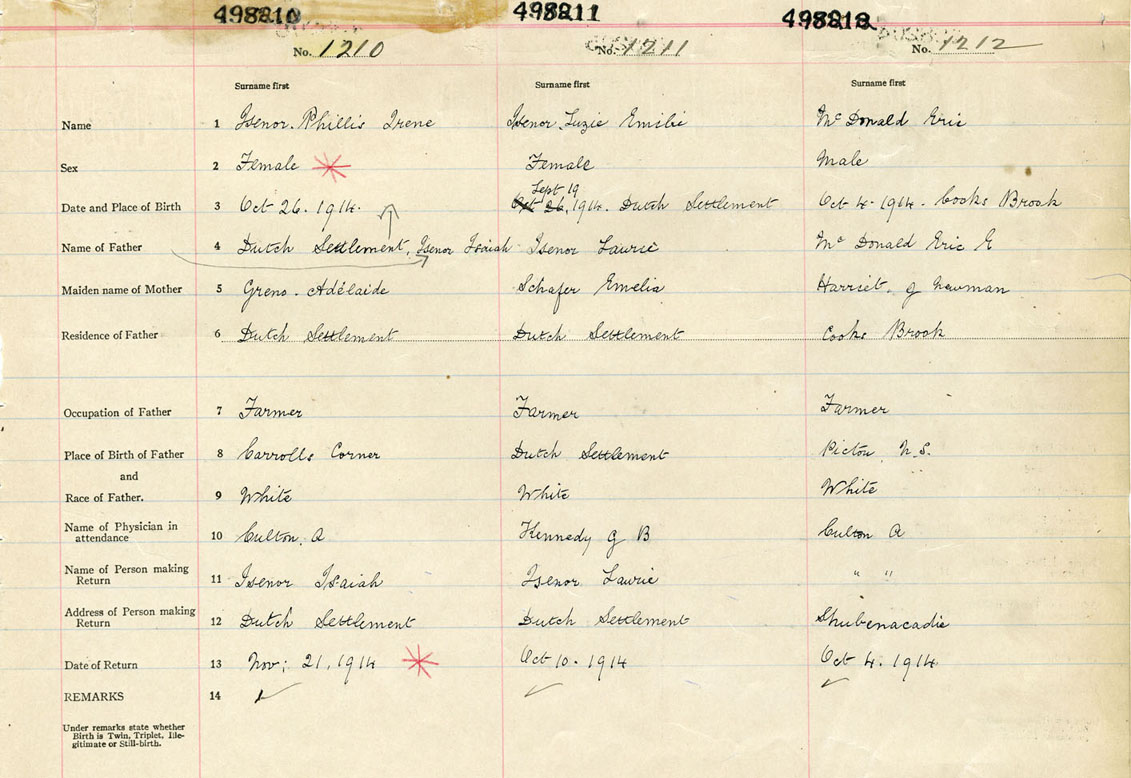 498210 498211 498212
No. 1210 No. 1211 No. 1212
Surname first Surname first Surname first
Name 1 Isenor. Phillis Irene Isenor Luzie Emilie Mc Donald Eric
Sex 2 Female Female Male
Sept 19
Date and Place of Birth 3 Oct 26. 1914. Oct 26, 1914. Dutch Settlement Oct 4. 1914. Cooks Brook
Name of Father 4 Dutch Settlement, Isenor Isaiah Isenor Laurie Mc Donald Eric E
Maiden name of Mother 5 Greno. Adélaide Schafer Emelia Harriet. g Newman
Residence of Father 6 Dutch Settlement Dutch Settlement Cooks Brook
Occupation of Father 7 Farmer Farmer Farmer
Place of Birth of Father 8 Carrolls Corner Dutch Settlement Pictou N.S.
and
Race of Father. 9 White White White
Name of Physician in attendance 10 Culton. A Kennedy G B Culton A
Name of Person making Return 11 Isenor Isaiah Isenor Laurie " "
Address of Person making Return 12 Dutch Settlement Dutch Settlement Shubenacadie
Date of Return 13 Nov; 21, 1914 Oct 10. 1914 Oct 4. 1914
REMARKS 14
Under remarks state whether
Birth is Twin, Triplet, Ille-
gitimate or Still-birth.